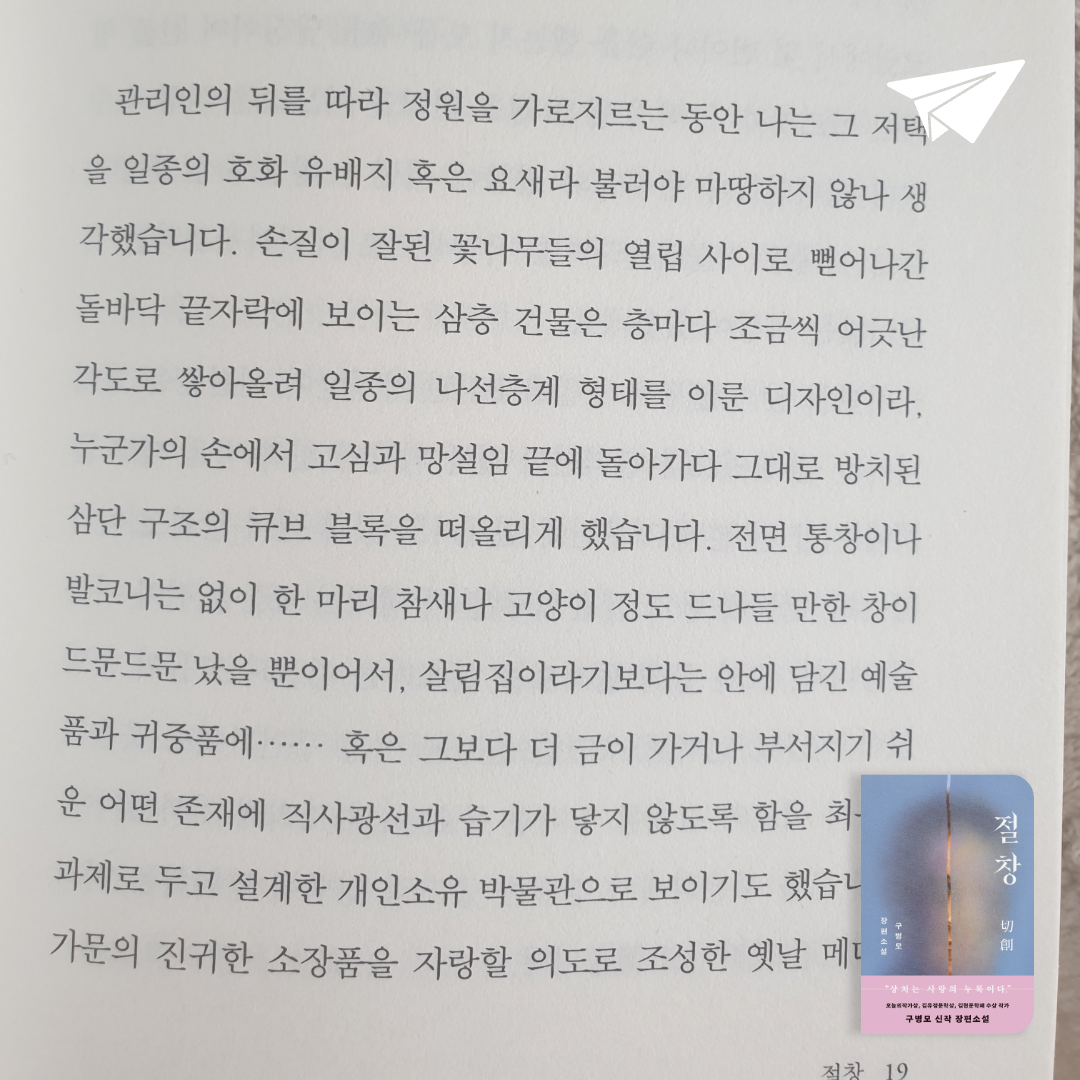 관리인의 뒤를 따라 정원을 가로지르는 동안 나는 그 저택
을 일종의 호화 유배지 혹은 요새라 불러야 마땅하지 않나 생
각했습니다. 손질이 잘된 꽃나무들의 열립 사이로 뻗어나간
돌바닥 끝자락에 보이는 삼층 건물은 층마다 조금씩 어긋난
각도로 쌓아올려 일종의 나선층계 형태를 이룬 디자인이라,
누군가의 손에서 고심과 망설임 끝에 돌아가다 그대로 방치된
삼단 구조의 큐브 블록을 떠올리게 했습니다. 전면 통창이나
발코니는 없이 한 마리 참새나 고양이 정도 드나들 만한 창이
드문드문 났을 뿐이어서, 살림집이라기보다는 안에 담긴 예술
품과 귀중품에…… 혹은 그보다 더 금이 가거나 부서지기 쉬
운 어떤 존재에 직사광선과 습기가 닿지 않도록 함을 최
과제로 두고 설계한 개인소유 박물관으로 보이기도 했습
가문의 진귀한 소장품을 자랑할 의도로 조성한 옛날 메
절창 19
절창
切創
구병모
장편소설
"상처는 사랑의 누룩이다."
오늘의작가상, 김유정문학상, 김현문학패 수상 작가
구병모 신작 장편소설